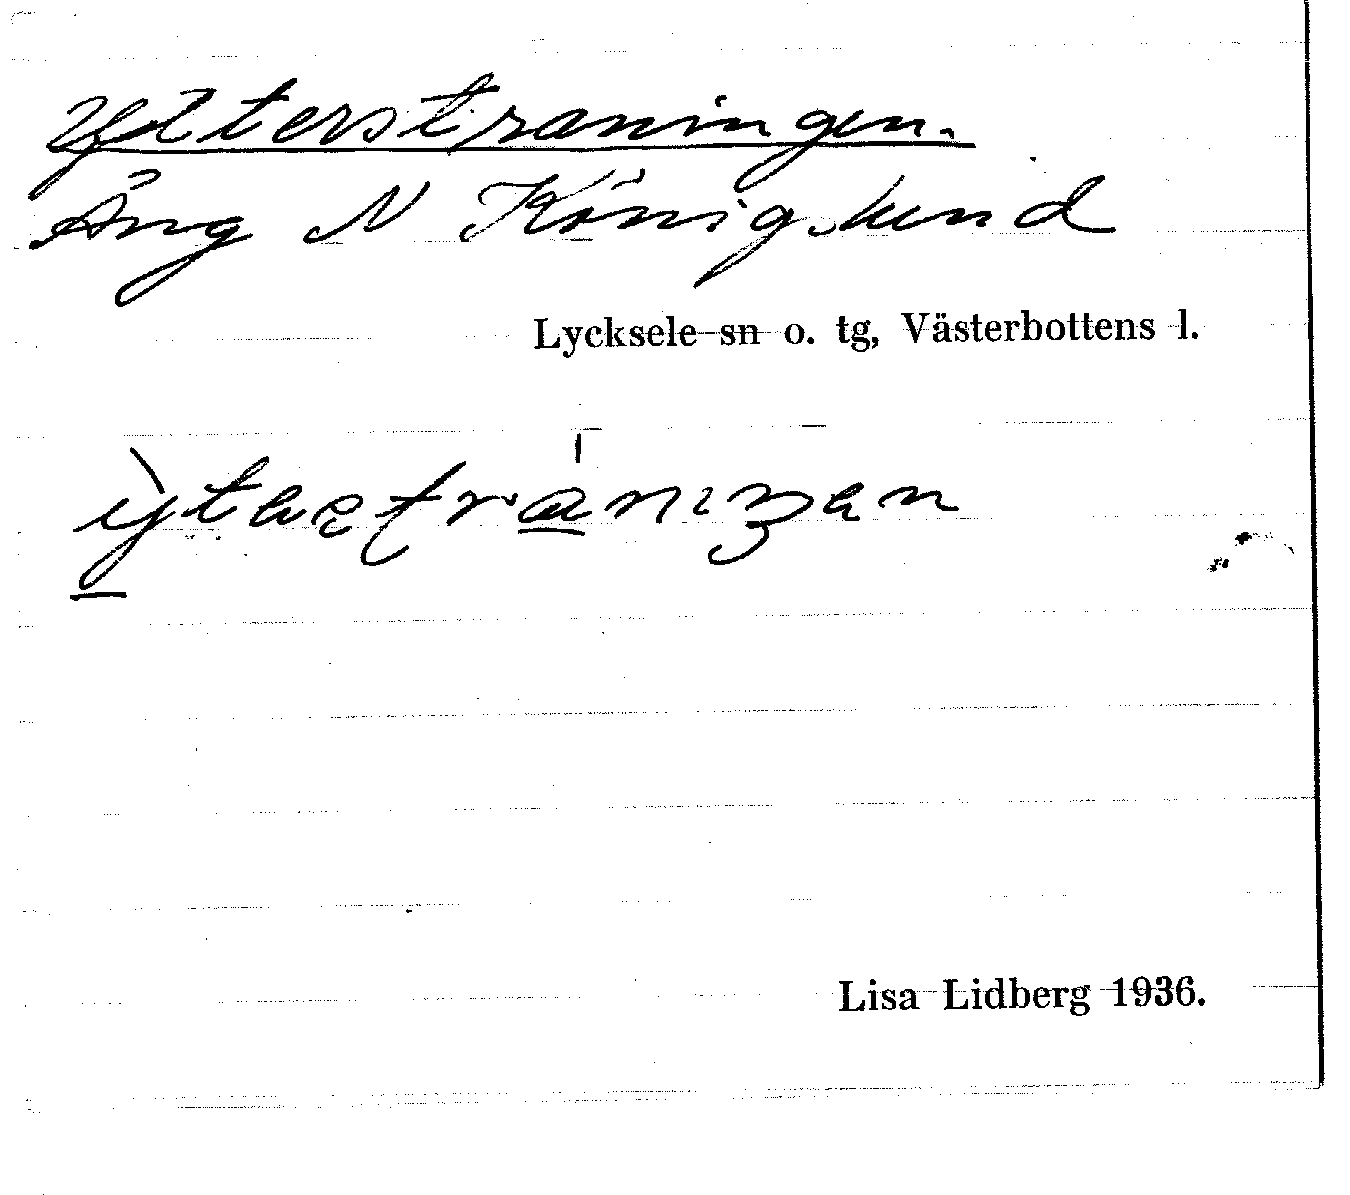 Ytterstraningen.
Äng N Königslund
Lycksele sn o. tg, Västerbottens l.
Lisa Lidberg 1936.